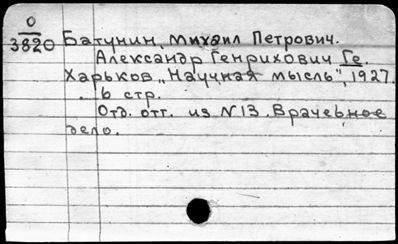 О
3820 Батунин, Михаил Петрович.
Александр Генрихович Ге.
Харьков „Научная мысль", 1927.
6 стр.
Отд. отт. из N13. Врачебное
дело.